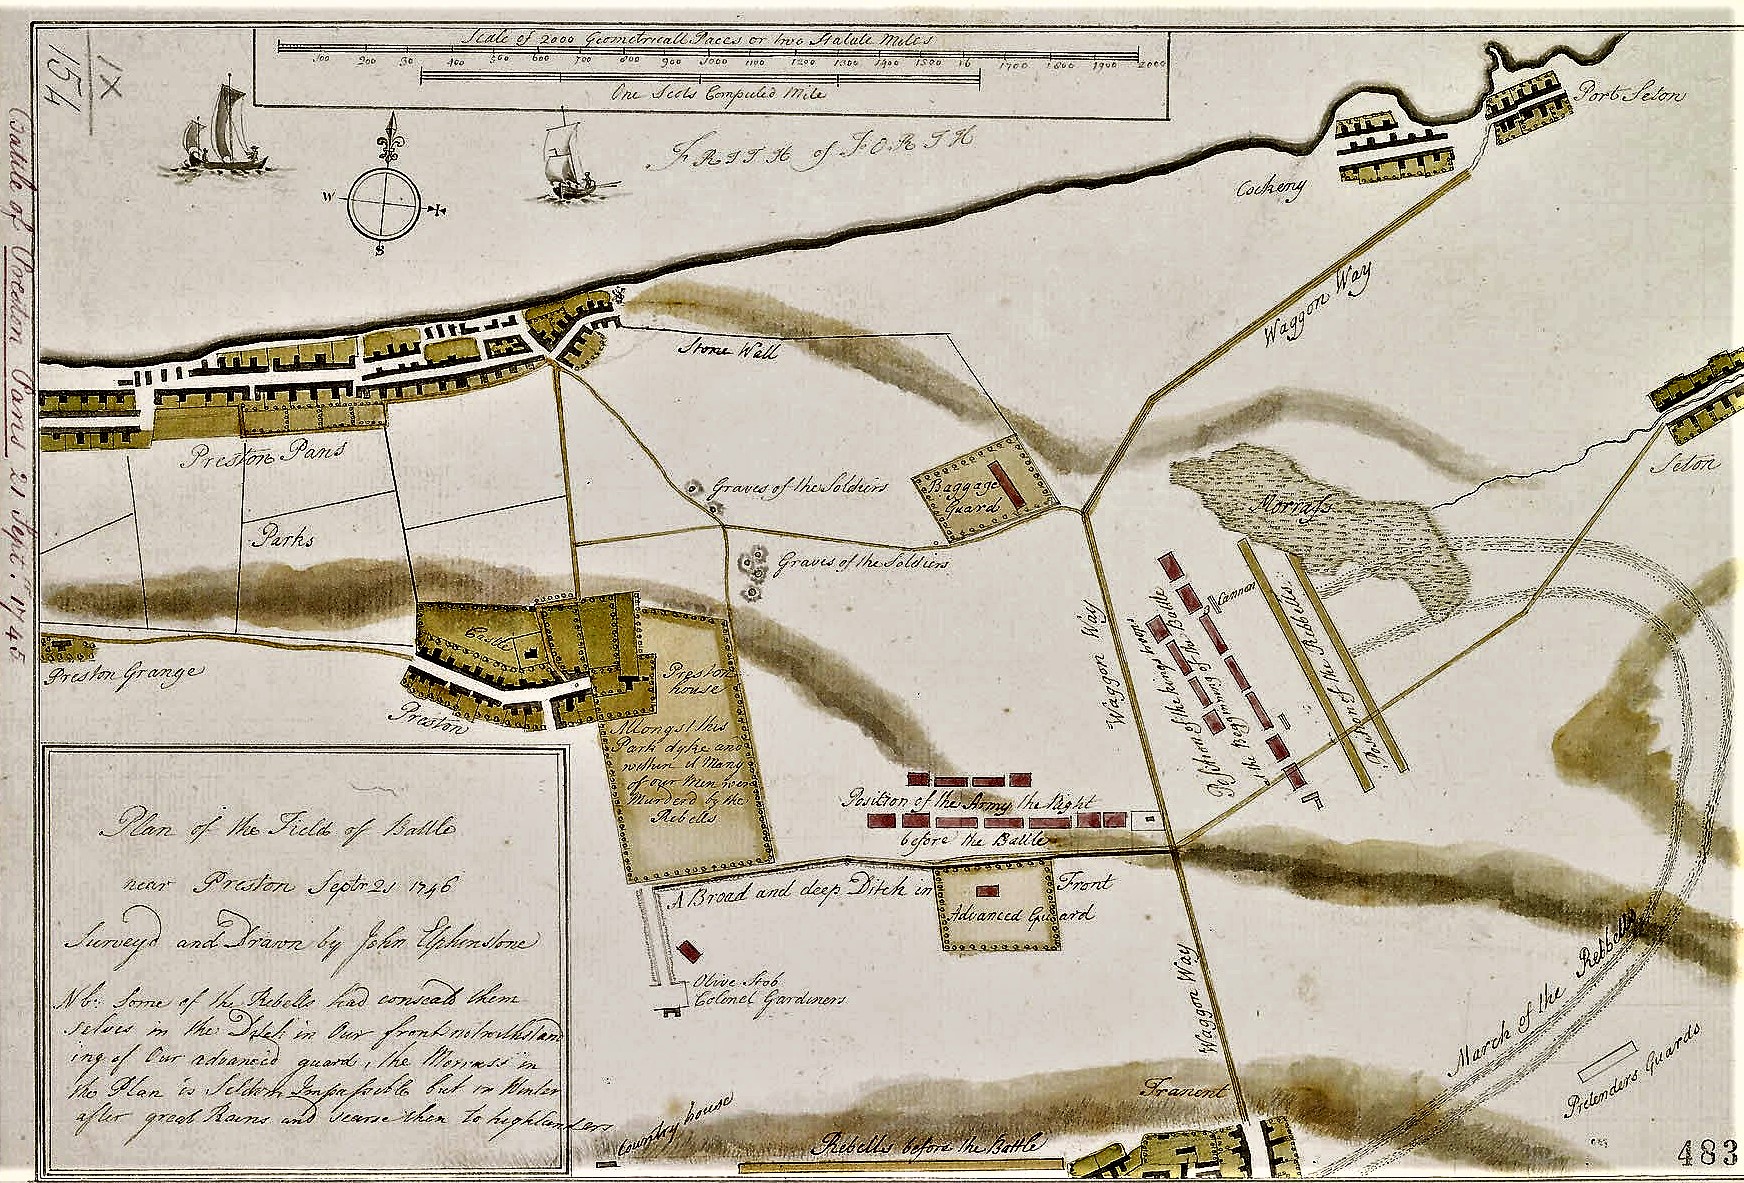 IX
154
Battle of Preston Pans 21 Sept. 1745
Scale of 2000 Geometricall Paces or two Statute Miles
100 200 30 400 500 600 700 800 900 1000 1100 1200 1300 1400 1500 16 1700 1800 1900 2000
One Scots Computed Mile
FRITH of FORTH
W
S
Port Seton
Cockeny
Waggon Way
Stone Wall
Preston Pans
Seton
Graves of the Soldiers
Baggage
Guard
Morrass
Parks
Graves of the Soldiers
Cannon
Waggon Way
Position of the kings troops
at the Beginning of the Battle
Position of the Rebells
Castle
Preston Grange
Preston
house
Preston
Alongst this
Park dyke and
within it Many
of our Men were
Murderd by the
Rebells
Position of the Army the Night
before the Battle
A Broad and deep Ditch in Front
Advanced Guard
Olive Stob
Colonel Gardiners
Waggon Way
March of the Rebbells
Pretenders Guards
Tranent
Country house
Rebells before the Battle
Plan of the Field of Battle
near Preston Septr 21 1746
Surveyd and Drawn by John Elphinstone
Nb: Some of the Rebells had conseald them
selves in the Ditch in Our front notwithstand
ing of Our advanced guard, the Morrass in
the Plan is Seldom Impassible but in Winter
after great Rains and scarse then to highlanders
483